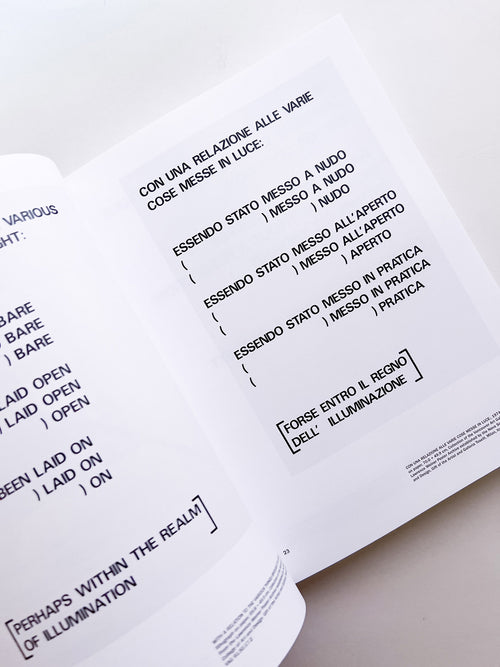 VARIOUS
GHT:
BARE
) BARE
) BARE
LAID OPEN
) LAID OPEN
) OPEN
BEEN LAID ON
) LAID ON
) ON
[PERHAPS WITHIN THE REALM
OF ILLUMINATION]
CON UNA RELAZIONE ALLE VARIE
COSE MESSE IN LUCE:
ESSENDO STATO MESSO A NUDO
( ) MESSO A NUDO
( ) NUDO
ESSENDO STATO MESSO ALL'APERTO
( ) MESSO ALL'APERTO
( ) APERTO
ESSENDO STATO MESSO IN PRATICA
( ) MESSO IN PRATICA
( ) PRATICA
[FORSE ENTRO IL REGNO
DELL' ILLUMINAZIONE]
CON UNA RELAZIONE ALLE VARIE COSE MESSE IN LUCE,
23